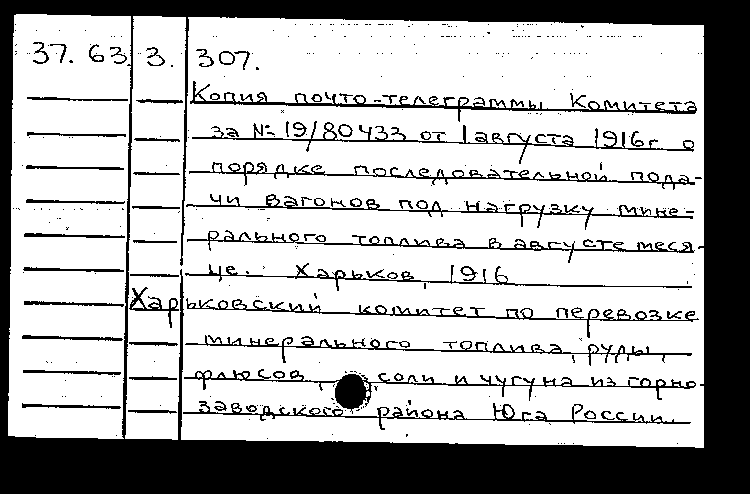 37. 63. 3. 307.
Копия почто-телеграммы Комитета
за № 19/80433 от 1 августа 1916 г. о
порядке последовательной пода-
чи вагонов под нагрузку мине-
рального топлива в августе меся-
це. Харьков, 1916
Харьковский комитет по перевозке
минерального топлива, руды,
флюсов, соли и чугуна из горно-
заводского района Юга России.